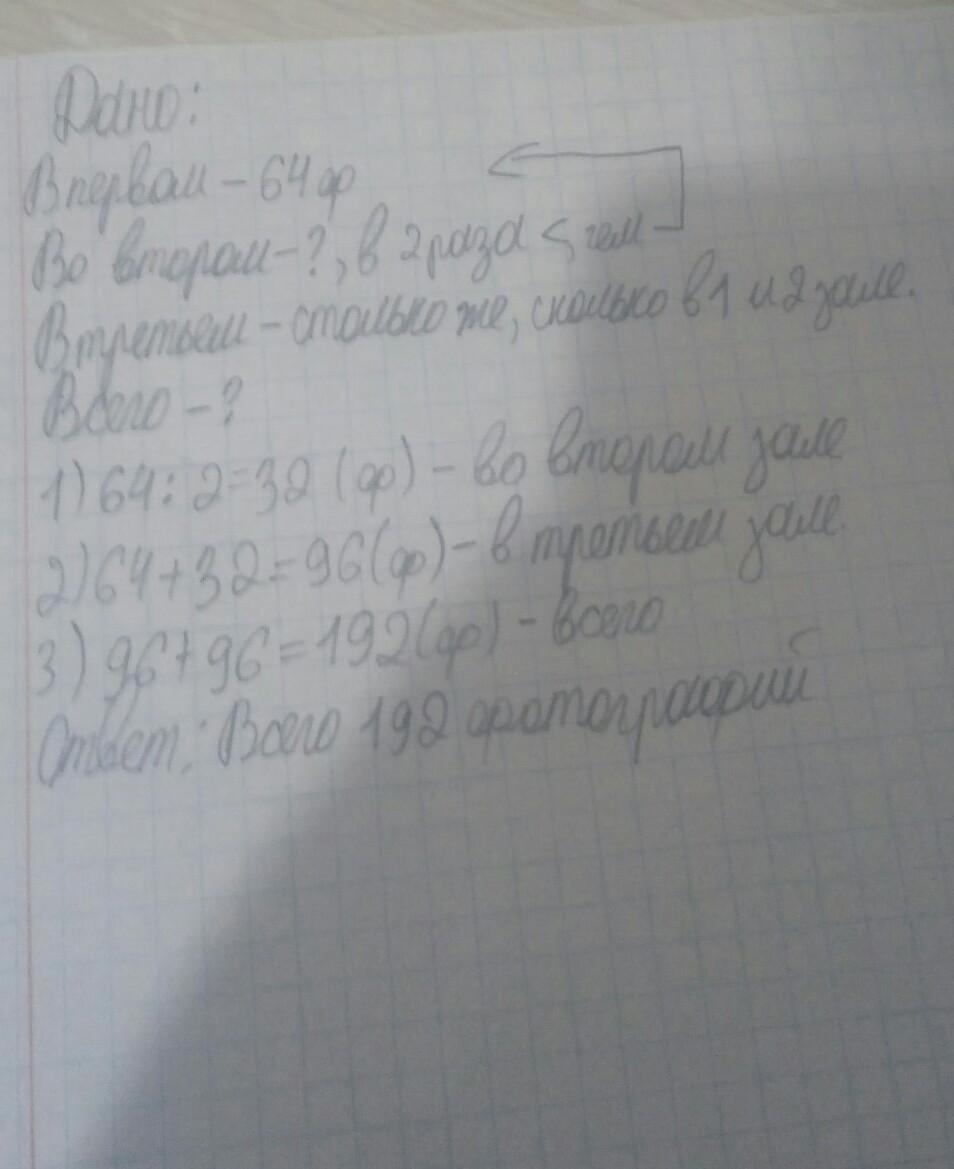 Дано:
В первом - 64 ф
Во втором - ?, в 2 раза <, чем
В третьем - столько же, сколько в 1 и 2 зале.
Всего - ?
1) 64 : 2 = 32 (ф) - во втором зале
2) 64 + 32 = 96 (ф) - в третьем зале
3) 96 + 96 = 192 (ф) - всего
Ответ: Всего 192 фотографий